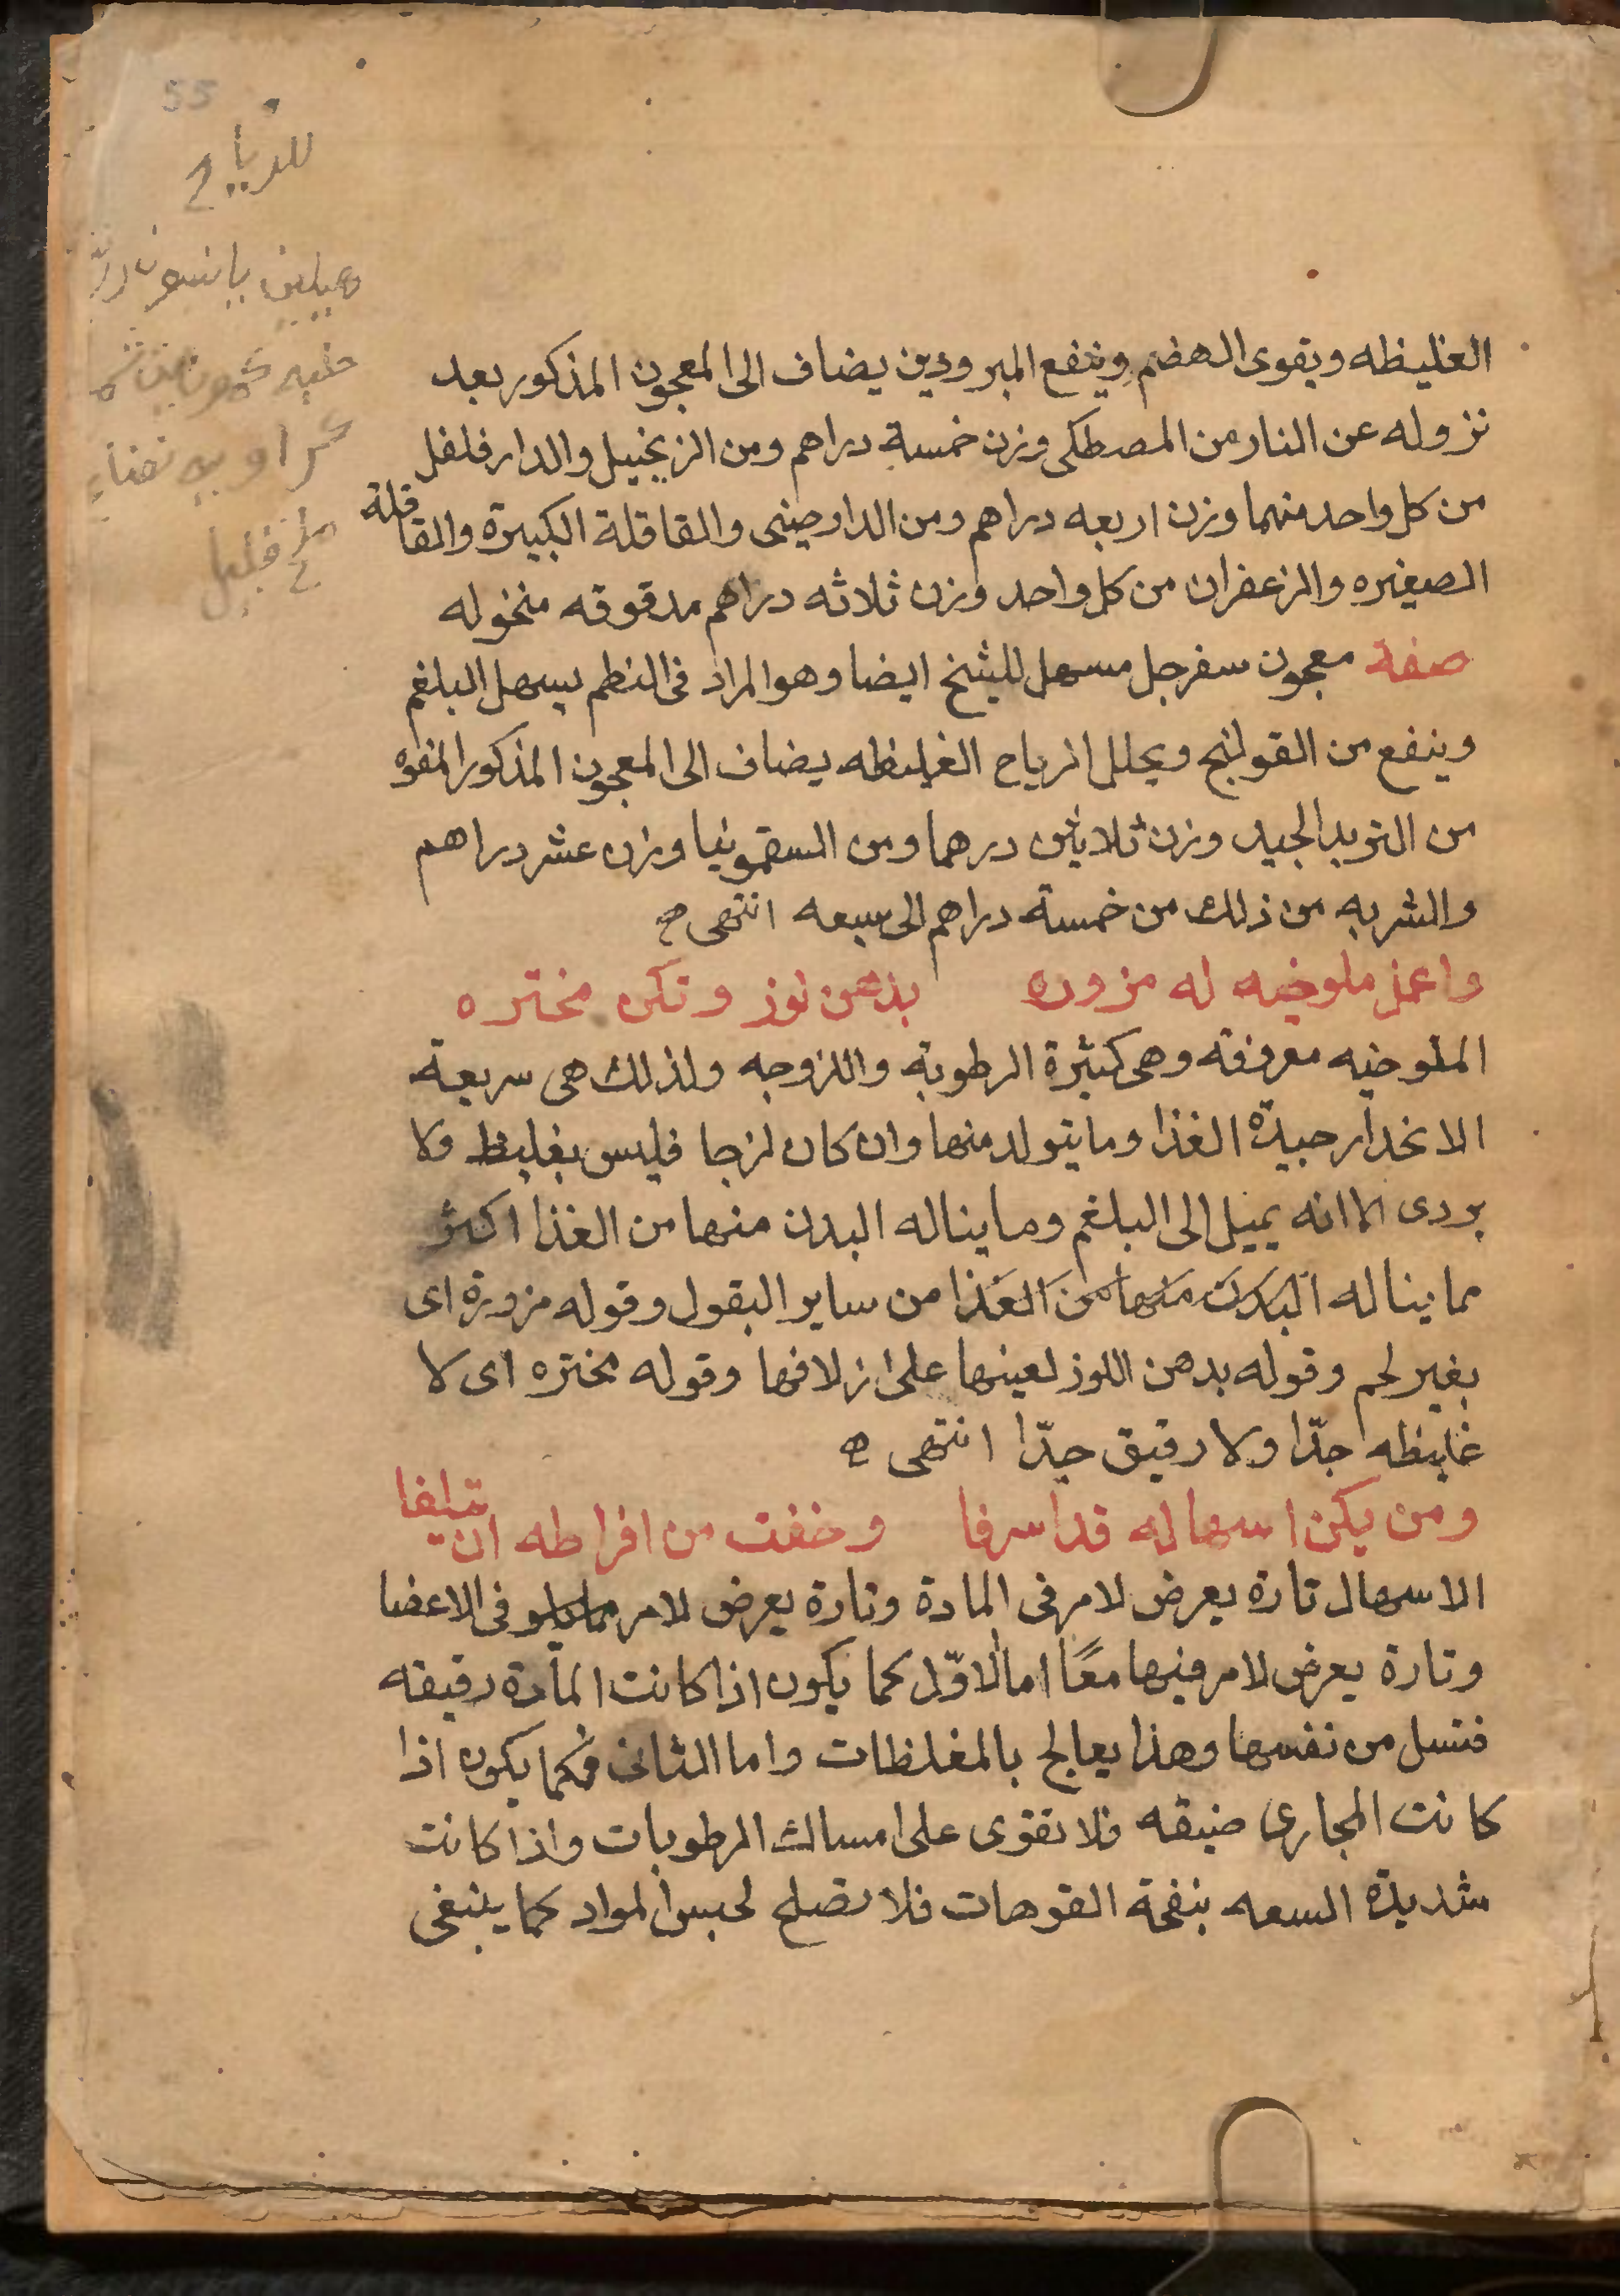 55
للرياح
الغليظه ويقوى الهضم وينفع المبرودين يضاف الى المعجون المذكور بعد
نزوله عن النار من المصطكى وزن خمسة دراهم ومن الزنجبيل والدار فلفل
من كل واحد منهما وزن اربعه دراهم ومن الدارصينى والقاقلة الكبيرة والقاقلة
الصغيره والزعفران من كل واحد وزن ثلاثه دراهم مدقوقه منخوله
صفة معجون سفرجل مسهل للشيخ ايضا وهو المراد فى النظم يسهل البلغم
وينفع من القولنج ويحلل الرياح الغليظه يضاف الى المعجون المذكور المفوه
من التربد الجيد وزن ثلاثين درهما ومن السقمونيا وزن عشر دراهم
والشربه من ذلك من خمسة دراهم الى سبعه انتهى
واعمز ملوخيه له مزوره بدهن لوز وتكن مخثره
الملوخيه معروفة وهى كثيرة الرطوبة واللزوجه ولذلك هى سريعة
الانحدار جيدة الغذا وما يتولد منها وان كان لزجا فليس بغليظ ولا
بردى الا انه يميل الى البلغم وما يناله البدن منها من الغذا اكثر
مما يناله البدن منها من الغذا من ساير البقول وقوله مزورة اى
بغير لحم وقوله بدهن اللوز لعينها على ازلاقها وقوله مخثره اى لا
غليظه جدّا ولا رقيق جدّا انتهى
ومن يكن اسهاله قد اسرفا وخفت من افراطه ان يتلفا
الاسهال تارة يعرض لامر فى المادة وتارة يعرض لامر فى الاعضا
وتارة يعرض لامر فيها معًا اما الاوّل كما يكون اذا كانت المادة رقيقه
فتسل من نفسها وهذا يعالج بالمغلظات واما الثانى فكما يكون اذا
كانت المجارى ضيقه فلا تقوى على امساك الرطوبات واذا كانت
شديدة السعه بنفحة الفوهات فلا تصلح لحبس المواد كما ينبغى